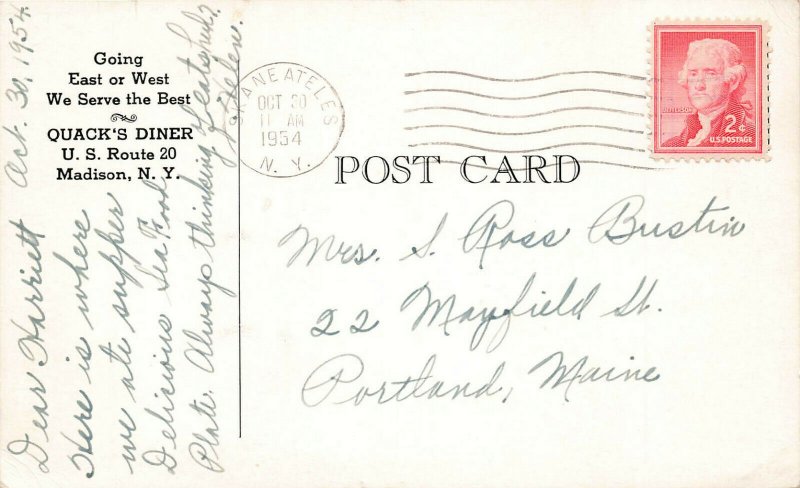 Going
East or West
We Serve the Best
QUACK'S DINER
U. S. Route 20
Madison, N. Y.
Oct. 30, 1954.
Dear Harriett
Here is where
we ate supper
Delicious Sea Food
Plate. Always thinking
Helen.
SKANEATELES
OCT 30
11 AM
1954
N. Y.
JEFFERSON
2¢
U.S. POSTAGE
POST CARD
Mrs. S. Ross Bustin
22 Mayfield St.
Portland, Maine